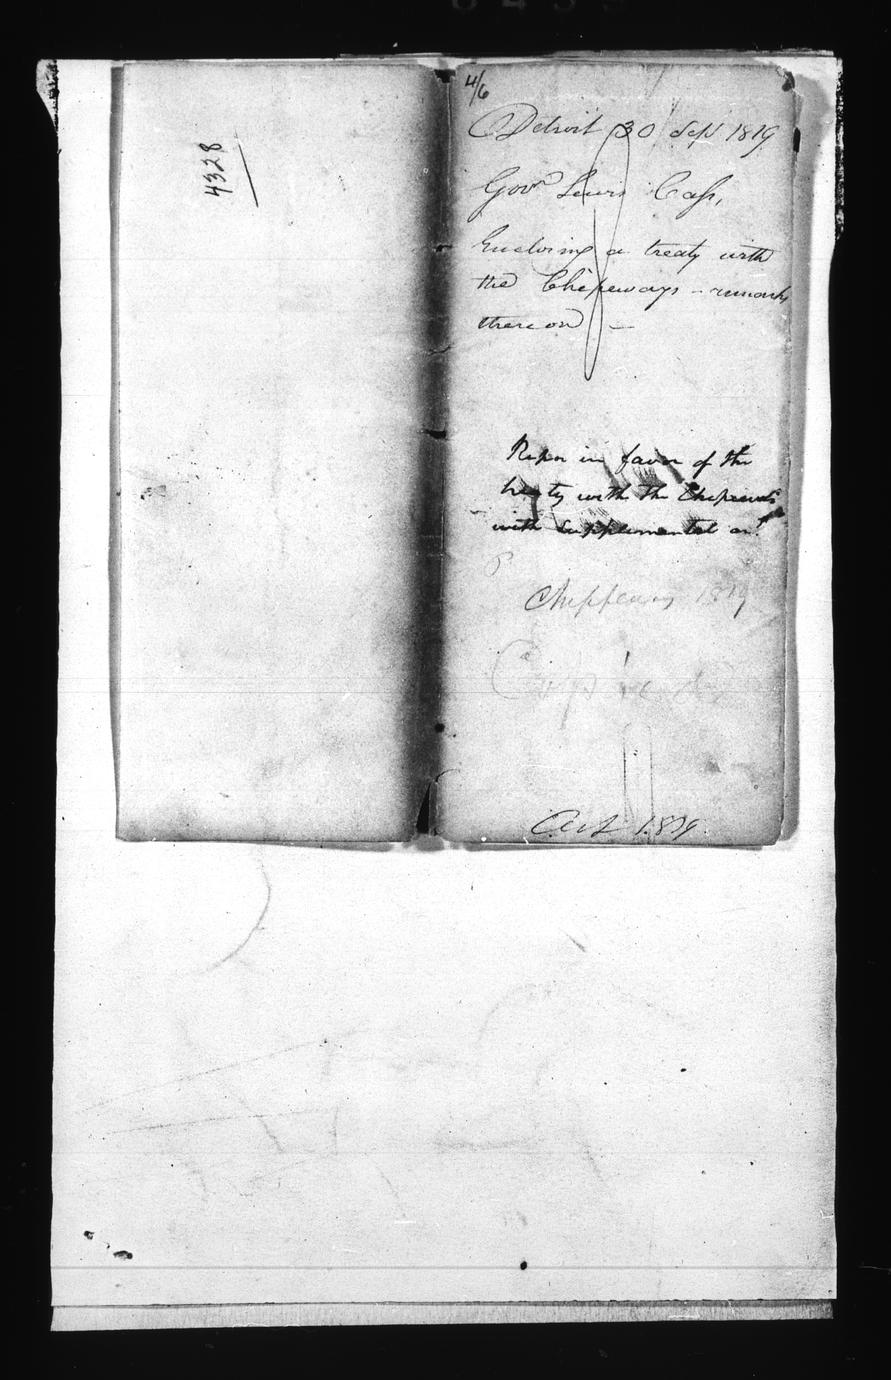 4328
4/6
Detroit 30 Sept 1819
Govr Lewis Cass,
Enclosing a treaty with
the Chipeways - remarks
thereon -
Repor in favor of the
treaty with the Chipeways
with Supplemental
Chippeway 1819
1819